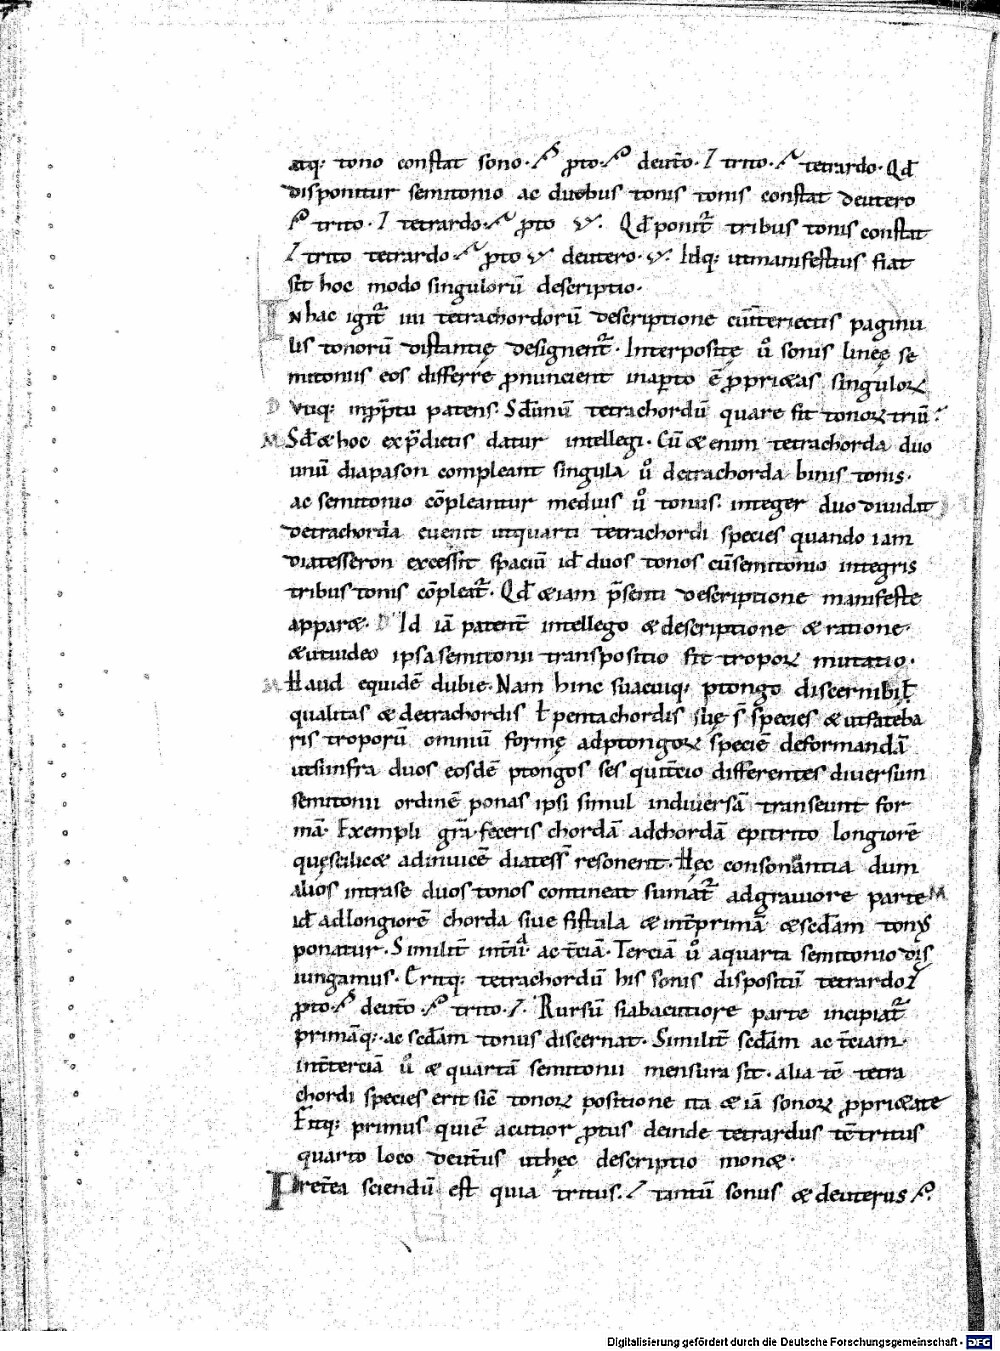 atq; tono constat sono · ꝓto · deut̄o · I trito · tetrardo · Qđ
disponitur semitonio ac duobus tonis tonis constat deutero
trito · I tetrardo · ꝓto · Qđ ponit̄ tribus tonis constat
I trito tetrardo · ꝓto deutero · Idq; ut manifestius fiat
sit hoc modo singulorū descriptio ·
In hac igit̄ IIII tetrachordorū descriptione cū interiectis paginu
lis tonorū distantię designent̄ · Interpositę ū sonis lineę se
mitoniis eos differre ꝓnuncient in aꝑto ē ꝓprietas singuloꝝ
tetrachordū quare sit tonoꝝ triū ?
Sđ & hoc ex p̄dictis datur intellegi · Cū & enim tetrachorda duo
unū diapason compleant singula ū detrachorda binis tonis ·
ac semitonio cōpleantur medius ū tonus · integer duo diuidat
detrachorda euenit ut quarti tetrachordi species quando iam
diatesseron excessit spaciū iđ duos tonos cū semitonio integris
tribus tonis cōpleat̄ · Qđ & iam p̄senti descriptione manifeste
appar& · D Id iā patent̄ intellego & descriptione & ratione ·
& ut uideo ipsa semitonii transpositio sit tropoꝝ mutatio ·
M Haud equidē dubie · Nam hinc suacuiq; ptongo discernibił
qualitas & detrachordis ł pentachordis suę s̄ species & ut fateba
ris troporū omniū formę ad ptongoꝝ speciē deformandā
ut si infra duos eosdē ptongos differentes diuersum
semitonii ordinē ponas ipsi simul in diuersā transeunt for
mā · Exempli gr̄a · feceris chordā ad chordā epitrito longiorē
quę scilic& ad inuicē diatess̄ resonent · Hęc consonantia dum
alios intra se duos tonos contineat sumat̄ ad grauiore parte M
iđ ad longiorē chorda siue fistula & int̄ primā & sedam tonus
ponatur · Similit̄ ac t̄ciā · Terciā ū a quarta semitonio dis
iungamus · Eritq; tetrachordū his sonis dispositū tetrardo
ꝓto · deut̄o · trito · I · Rursū si ab acutiore parte incipiat̄
primāq; · ac sedam tonus discernat · Similit̄ sedam ac t̄ciam ·
int̄ terciā ū & quartā semitonii mensura sit · alia tē tetra
chordi species erit sic̄ tonoꝝ positione ita & iā sonoꝝ ꝓpri&ate
Eritq; primus acutior ꝓtus deinde tetrardus tē tritus
quarto loco deut̄us ut hęc descriptio mon& ·
Pret̄ea sciendū est quia tritus · I tantū sonus & deuterus
Digitalisierung gefördert durch die Deutsche Forschungsgemeinschaft - DFG